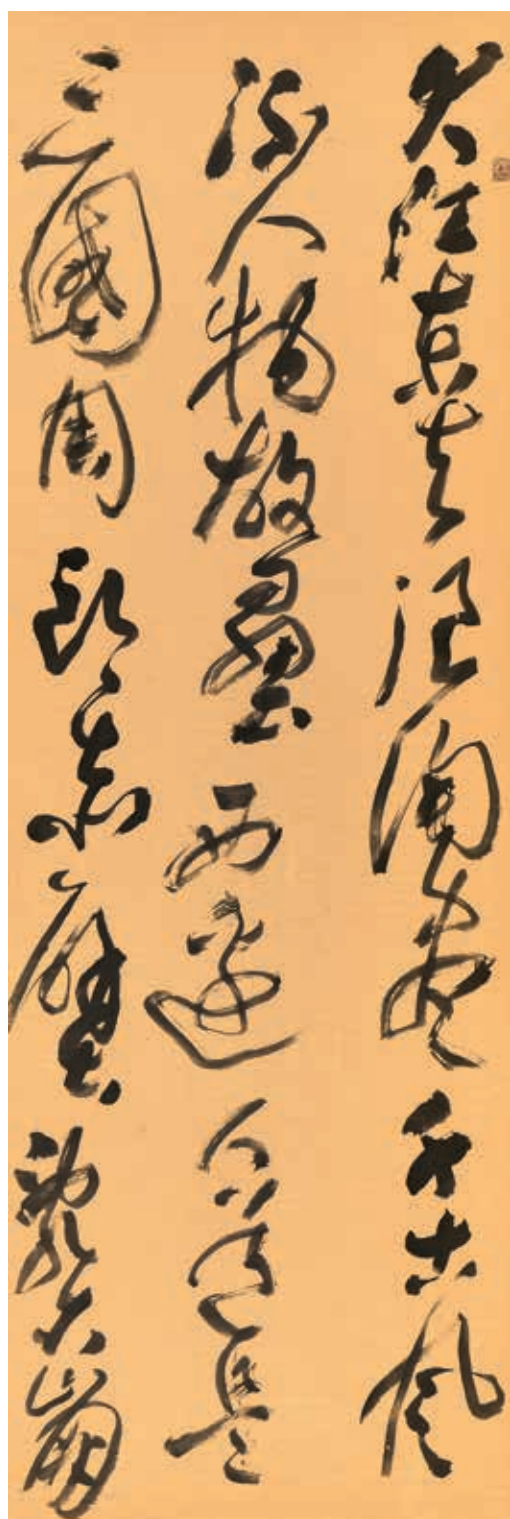 大江東去浪淘盡千古風
流人物故壘西邊人道是
三國周郎赤壁亂石崩